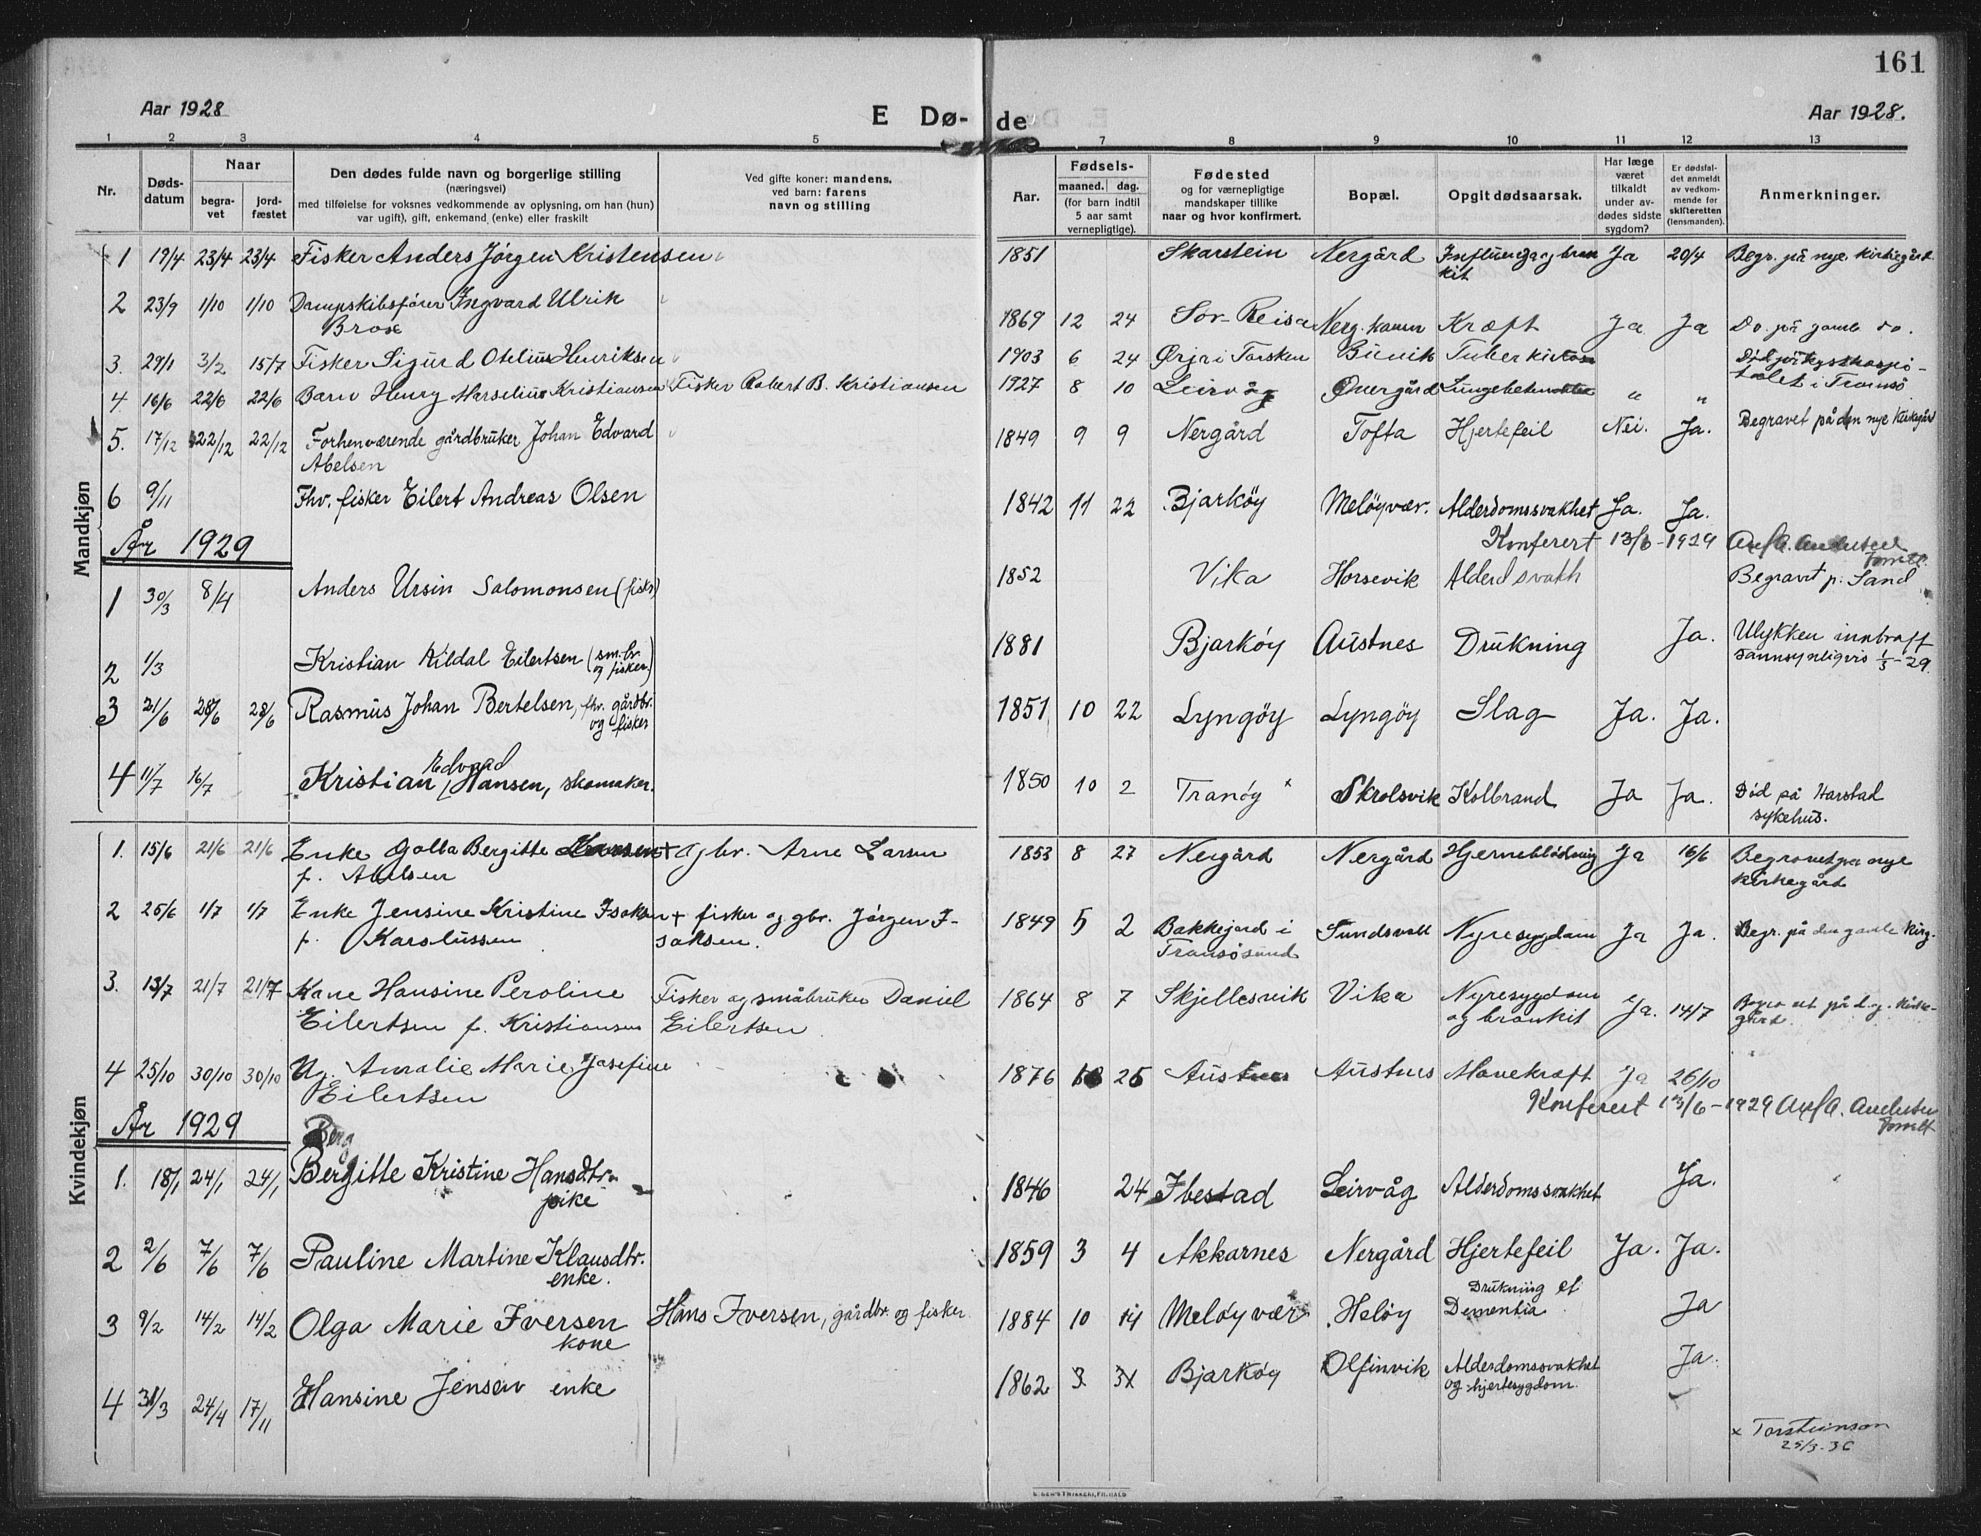 161
Aar 1928
E Dø-
de
Aar 1928.
1 2 3 4 5 7 8 9 10 11 12 13
Nr.
Døds-
datum
Naar
begra-
vet
jord-
fæstet
Den dødes fulde navn og borgerlige stilling
(næringsvei)
med tilføielse for voksnes vedkommende av oplysning, om han (hun)
var ugift), gift, enkemand (enke) eller fraskilt
Ved gifte koner: mandens,
ved barn: farens
navn og stilling
Aar.
Fødsels-
maaned. dag.
(for barn indtil
5 aar samt
vernepligtige).
Fødested
og for værnepligtige
mandskaper tillike
naar og hvor konfirmert.
Bopæl.
Opgit dødsaarsak.
Har læge
været
tilkaldt
under av-
dødes sidste
sygdom?
Er dødsfal-
det anmeldt
av vedkom-
mende før
skifteretten
(lensmanden).
Anmerkninger.
Mandkjøn
1 19/4 23/4 23/4 Fisker Anders Jørgen Kristensen 1851 Skarstein Nergård Influenza og bron
kit Ja 20/4 Begr. på nye kirkegård
2 23/9 1/10 1/10 Dampskibsfører Ingvard Ulrik
Brox 1869 12 24 Sør-Reisa Nerg. hamn Kræft Ja Ja Do. på gamle do.
3. 29/1 3/2 15/7 Fisker Sigurd Otelius Henriksen 1903 6 24 Ørja i Torsken Bunik Tuberkulose Død på kysthospi-
talet i Tromsø
4 16/6 22/6 22/6 Barn Henry Marselius Kristiansen Fisker Robert B. Kristiansen 1927 8 10 Leirvåg Øvergård Lungebetændelse " "
5. 17/12 22/12 22/12 Forhenværende gårdbruker Johan Edvard
Abelsen 1849 9 9 Nergård Tofta Hjertefeil Nei. Ja. Begravet på den nye Kirkegård
6 9/11 Fhv. fisker Eilert Andreas Olsen 1842 11 22 Bjarkøy Meløyvær. Alderdomssvakhet Ja. Ja.
Konferert 13/6-1929
År 1929
1 30/3 8/4 Anders Ursin Salomonsen (fisker) 1852 Vika Horsevik Alderdsvakh Begravet p. Sand
2 1/3 Kristian Kildal Eilertsen (sm.br.
og fisker) 1881 Bjarkøy Austnes Drukning Ja. Ulykken inntraff
sannsynligvis 1/3-29
3 21/6 28/6 28/6 Rasmus Johan Bertelsen, fhv. gårdbr.
og fisker 1851 10 22 Lyngøy Lyngøy Slag Ja. Ja.
4 11/7 16/7 Kristian Edvard Hansen, skomaker. 1850 10 2 Tranøy x Skrolsvik Kolbrand Ja Ja. Død på Harstad
sykehus.
Kvindekjøn
1. 15/6 21/6 21/6 Enke Golla Bergitte Larsen + Gbr. Arne Larsen
f. Abelsen 1853 8 27 Nergård Nergård Hjerneblødning Ja 16/6 Begravet på nye
kirkegård
2 25/6 1/7 1/7 Enke Jensine Kristine Isaksen + fisker og gbr. Jørgen I-
f. Karolussen saksen. 1849 5 2 Bakkejord i
Tromsøsund Sundsvoll Nyresygdom Ja Ja. Begr. på den gamle Kirg.
3. 13/7 21/7 21/7 Kone Hansine Peroline Fisker og småbruker Daniel
Eilertsen f. Kristiansen Eilertsen 1864 8 7 Skjellesvik Vika Nyresygdom
og bronkit Ja. 14/7 Begravet på d. g. Kirke-
gård.
4 25/10 30/10 30/10 Ug. Amalie Marie Josefine
Eilertsen 1876 25 Austnes Austnes Mavekræft Ja 26/10
Konferert 13/6-1929
År 1929
Berg
1. 18/1 24/1 24/1 Bergitte Kristine Hansdtr.
pike 1846 24 Ibestad Leirvåg Alderdomssvakhet Ja.
2 2/6 7/6 7/6 Pauline Martine Klausdtr.
enke. 1859 3 4 Akkarnes Nergård Hjertefeil Ja. Ja.
3 9/2 14/2 14/2 Olga Marie Iversen Hans Iversen, gårdbr. og fisker
kone 1884 10 14 Meløyvær Heløy Drukning et
Dementia Ja
4 31/3 24/4 17/11 Hansine Jensen enke 1862 3 Bjarkøy Olfinvik Alderdomssvakhet
og hjertesygdom. Ja.
x Torsteinson
25/3-36